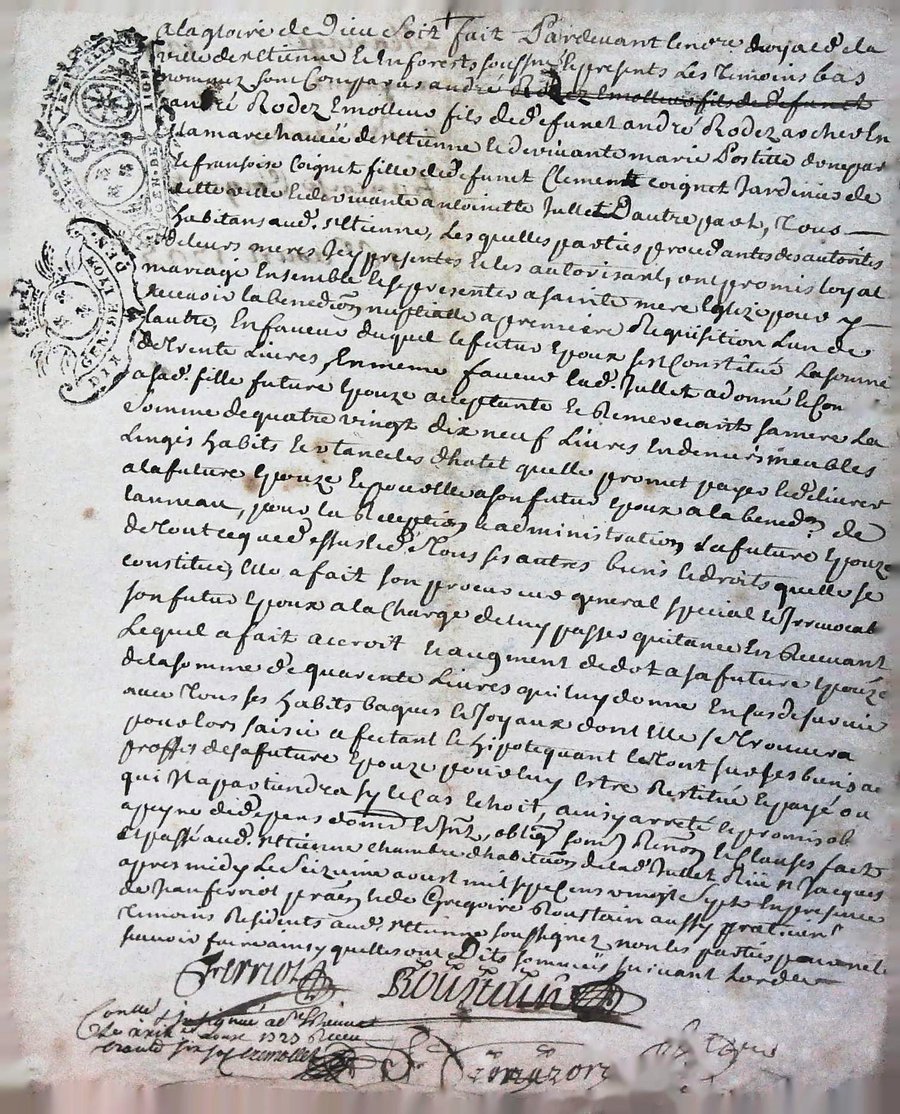 a la gloire de Dieu Soit fait Pardevant le no.re royal de la
ville de st etienne en forests soussné et presents les temoins bas
nommez sont Comparus andré Rodez Emolleur fils de defunct
andré Rodez Emolleur fils de defunct andré Rodez archer En
la marechaucée de st etienne et de vivante marie Postille donepar
et françoise Coignet fille de defunct Clement Coignet Jardinier de
ditte ville et de vivante antoinette Jullet Dautre part, Tous
habitans aud. st etienne, Les quelles parties proceddantes des autorités
de leurs meres Jcy presentes et les autorisant, ont promis loyal
mariage Ensemble et se presenter a sainte mere Eglize pour y
recevoir la benedion nuptialle a premiere Requisition Lun de
lautre, En faveur duquel le futur Epoux sest Constitué La somme
de trente Livres, En meme faveur lad. Jullet a donné et Con
a sad. fille future Epouze acceptante et Remerciant sa mere La
Somme de quatre vingt dix neuf Livres En deniers meubles
Linges habits et ustancilles dhotel quelle promet payer et delivrer
a la future Epouze et pour elle a son futur Epoux a la benedon de
lanneau, pour la Reception et administration La future Epouze
de tout ce que dessus et de Tous ses autres biens et droits quelle se
constitue, Elle a fait son procureur general special et Jrrevocable
son futur Epoux a la Charge de luy passer quitance En Recevant
Lequel a fait accroit et augment de dot a sa future Epouze
de la somme de quarente Livres qui luy donne En cas de survie
avec Tous ses habits bagues et Joyaux dont Elle se trouvera
pour lors saisie affectant et hipotequant le Tout sur ses biens au
proffit de sa future Epouze pour luy Estre Restitué et payé ou
qui Jl apartiendra sy le Cas Echoit, ainsy arreté et promis ob
a peyne de depens dom et Jnt, oblign soumon Renon et clauses fait
et passé aud. st etienne chambre dhabitation de lad. Jullet Rüe st Jacques
apres midy Le Seizieme aoust mil sept cens vingt Septs En presence
de Jean ferriol praen et de Gregoire Roustain aussy praticient
Temoins Residents aud. st etienne soussignez non les parties pour ne le
scavoir faire ainsy quelles ont Dit sommeés suivant Lordre
Ferriol Roustain
Conllé & insinué a st etienne